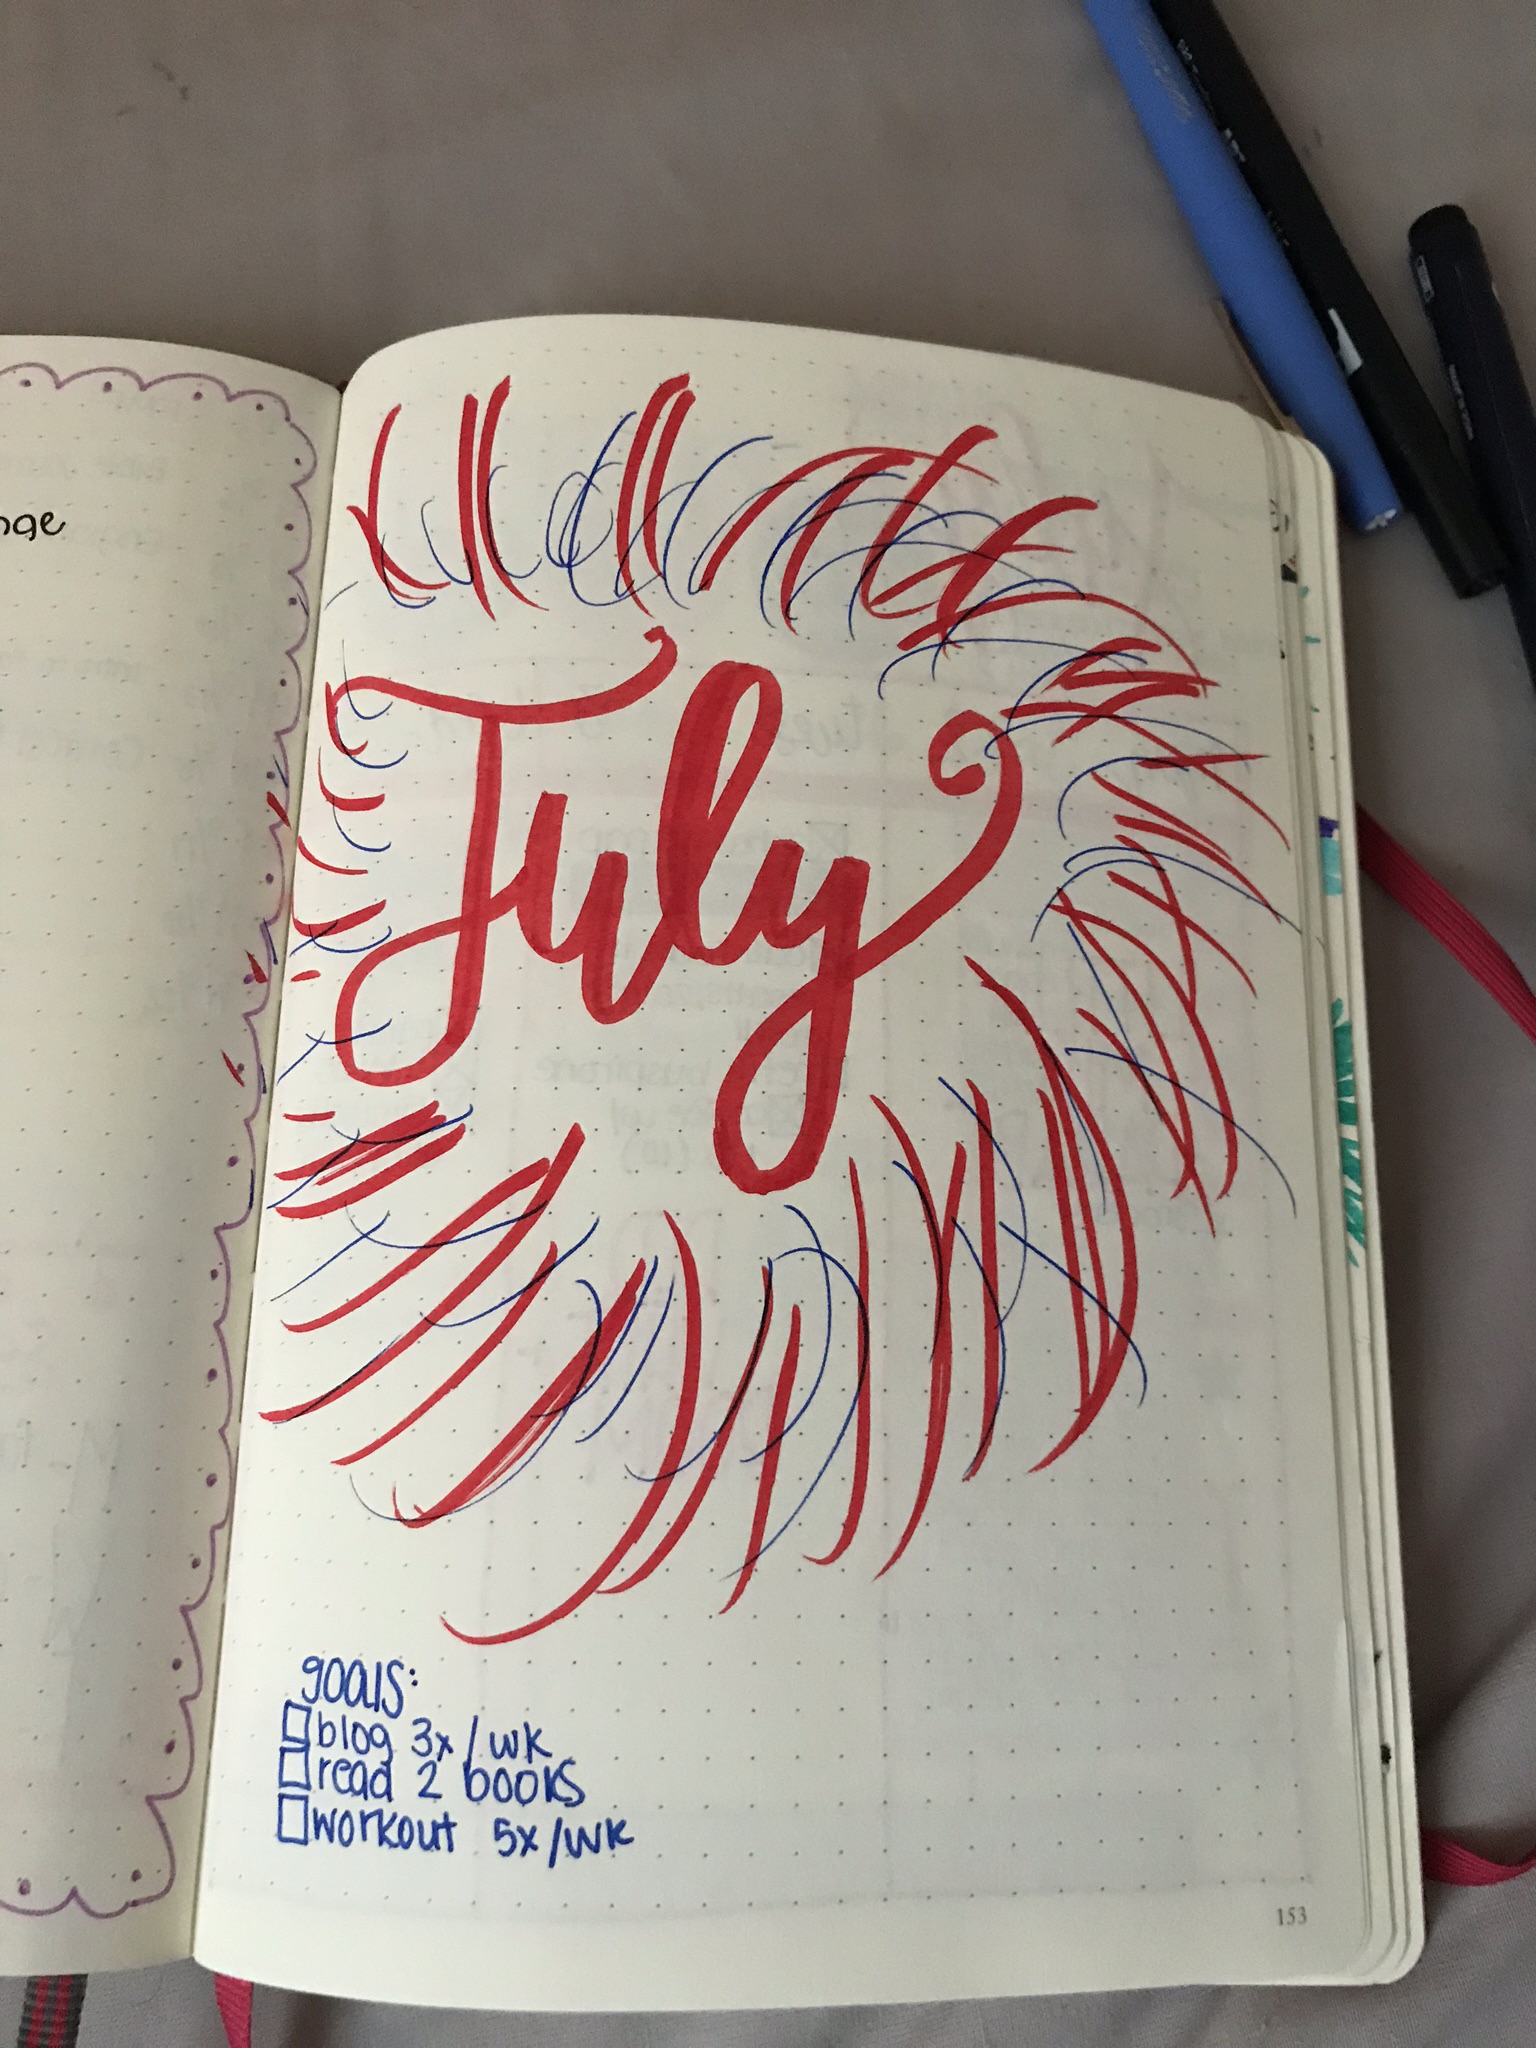 July
goals:
blog 3x/wk
read 2 books
workout 5x/wk
153